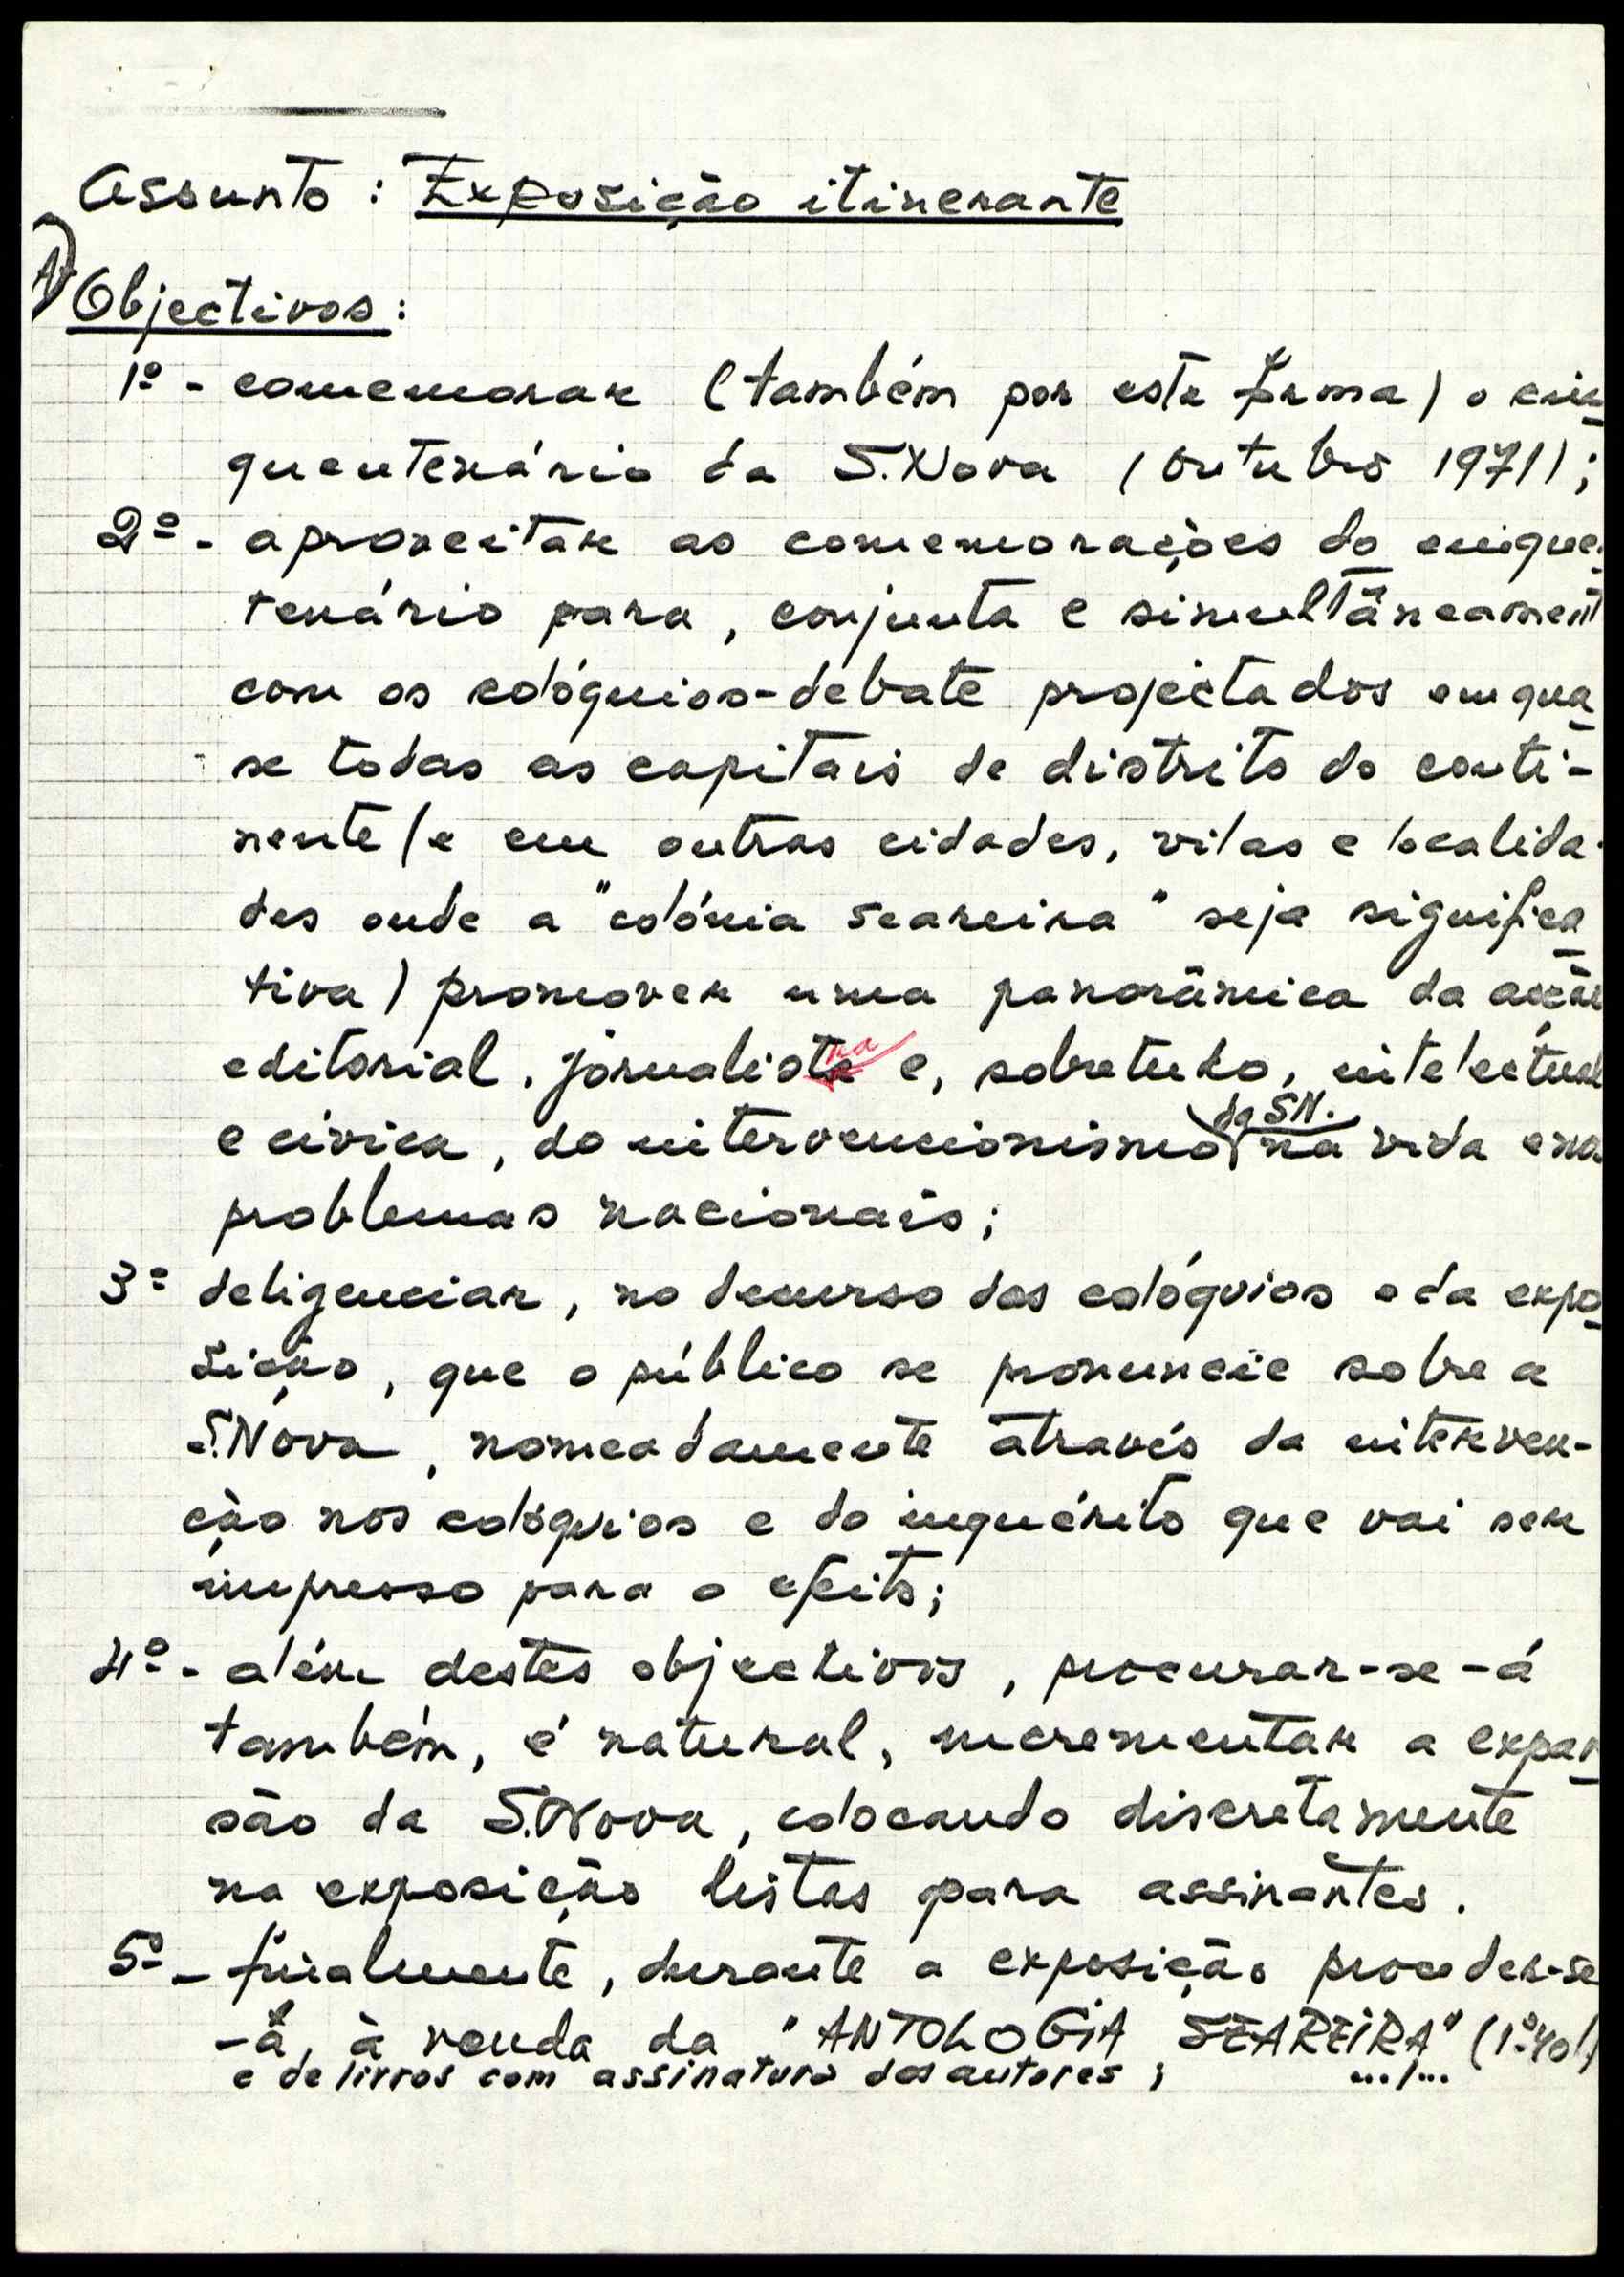 Assunto: Exposição itinerante
A) Objectivos:
1º - comemorar (também por esta forma) o cin
quentenário da S.Nova (Outubro 1971);
2º - aproveitar as comemorações do cinquen
tenário para, conjunta e simultâneament
com os colóquios-debate projectados em qua
se todas as capitais de distrito do conti-
nente (e em outras cidades, vilas e localida-
des onde a "colónia seareira" seja significa
tiva) promover uma panorâmica da acção
editorial, jornalista e, sobretudo, intelectual
e cívica, do intervencionismo da SN. na vida e no
problemas nacionais;
3º deligenciar, no decurso dos colóquios e da expo
sição, que o público se pronuncie sobre a
S.Nova, nomeadamente através da interven-
ção nos colóquios e do inquérito que vai ser
impresso para o efeito;
4º - além destes objectivos, procurar-se-á
também, é natural, incrementar a expan
são da S.Nova, colocando discretamente
na exposição listas para assinantes.
5º - finalmente, durante a exposição proceder-se
-á, à venda da "ANTOLOGIA SEAREIRA" (1º vol)
e de livros com assinatura dos autores;
.../...